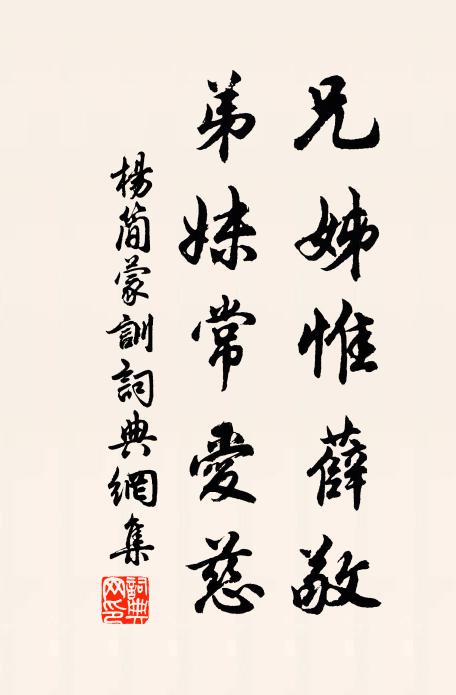 兄姊惟薛敬
弟妹常愛慈
楊簡蒙訓詞典網集
詞典網印